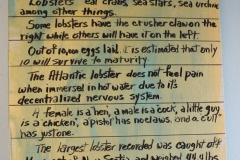 Lobsters eat crabs, sea stars, sea urchins
among other things.
Some lobsters have the crusher claw on the
right while others will have it on the left.
Out of 10,000 eggs laid. it is estimated that only
10 will survive to maturity
The Atlantic lobster does not feel pain
when immersed in hot water due to its
decentralized nervous system.
A female is a hen, a male is a cock, a little guy
is a chicken, a pistol has no claws, and a cull
has just one.
The largest lobster recorded was caught off
Nova Scotia and weighed 44.4 lbs